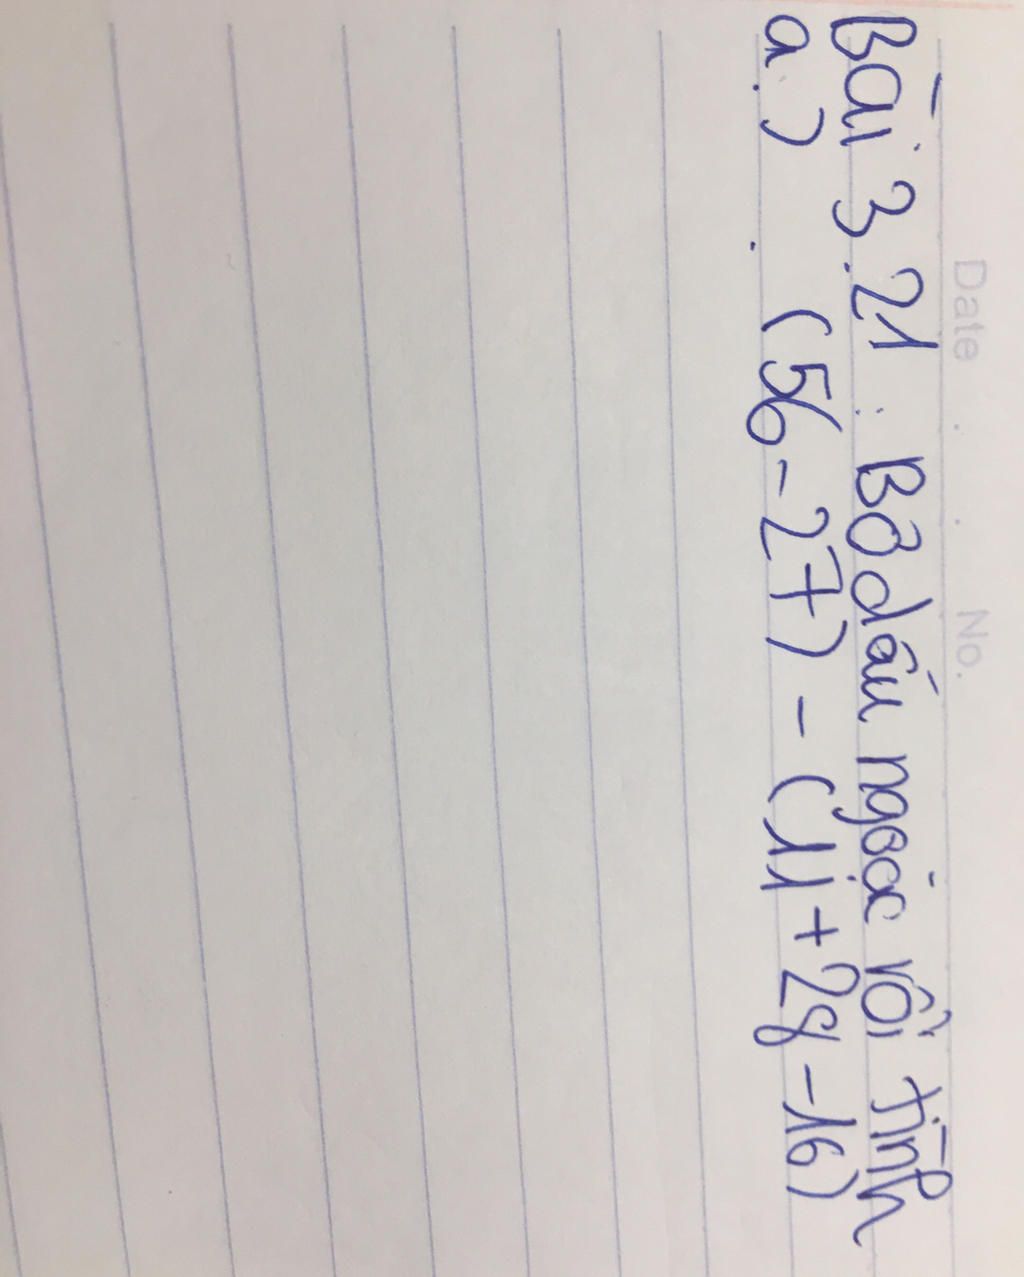 Date . . . No.
Bài 3.21 : Bỏ dấu ngoặc rồi tính
a.) (56-27) - (11+28-16)